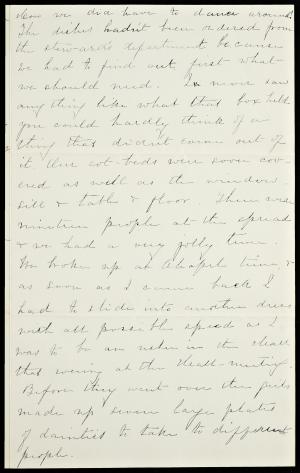 show we did have to dance around.
The dishes hadn't been ordered from
the steward's department because
we had to find out first what
we should need. I never saw
anything like what that box held
you could hardly think of a
thing that didn't come out of
it. Our cot-beds were soon cov-
ered as well as the window-
sill & table & floor. There were
nineteen people at the spread
& we had a very jolly time.
We broke up at Chapel time &
as soon as I came back I
had to slide into another dress
with all possible speed as I
was to be an usher in the chapel
that evening at the -meeting.
Before they went over the girls
made up seven large plates
of dainties to take to different
people.